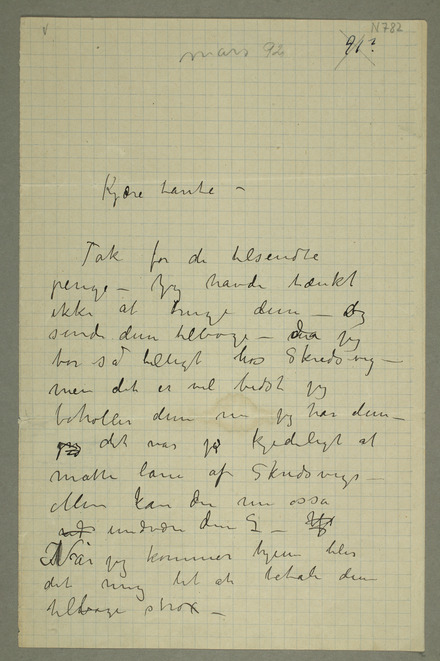 N 782
mars 92
91?
Kjære tante –
Tak for de tilsendte
penge – Jeg havde tænkt
ikke at bruge dem – og
sende dem tilbage – da jeg
bor så billigt hos Skredsvig –
men det er vel bedst jeg
beholder dem nu jeg har dem –
det var jo kjedeligt at
måtte låne af Skredsvigs –
Men kan du nu også
undvære dem –
Når jeg kommer hjem blir
det mig let at betale dem
tilbage strax –